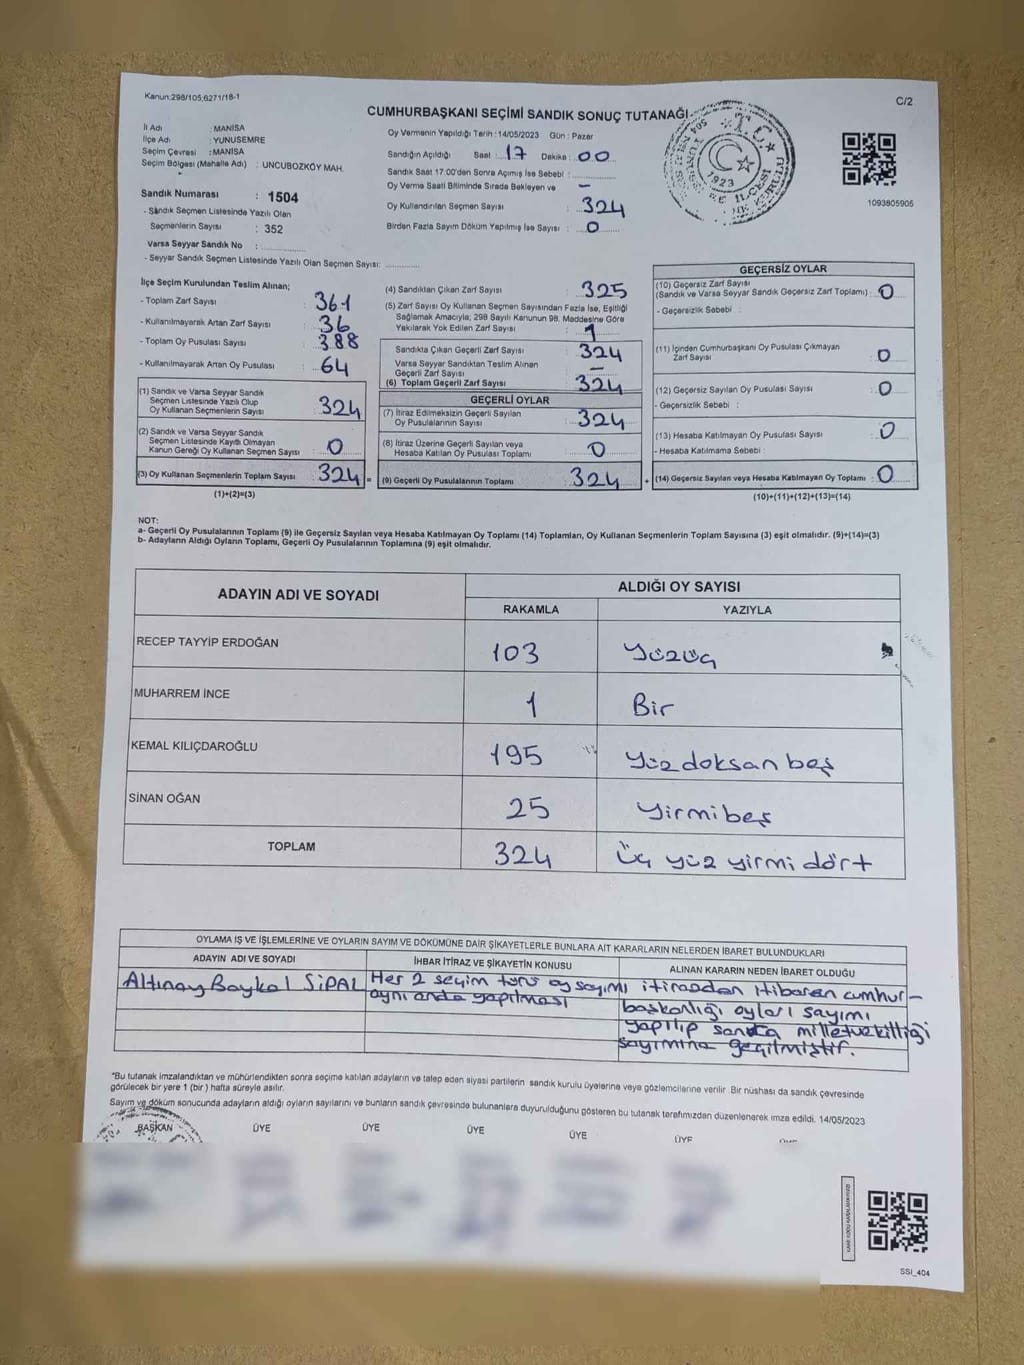 Kanun:298/105;6271/18-1
C/2
CUMHURBAŞKANI SEÇİMİ SANDIK SONUÇ TUTANAĞI
İl Adı : MANİSA
İlçe Adı : YUNUSEMRE
Seçim Çevresi : MANİSA
Seçim Bölgesi (Mahalle Adı) : UNCUBOZKÖY MAH.
Sandık Numarası : 1504
- Sandık Seçmen Listesinde Yazılı Olan
Seçmenlerin Sayısı : 352
Varsa Seyyar Sandık No :
- Seyyar Sandık Seçmen Listesinde Yazılı Olan Seçmen Sayısı:
Oy Vermenin Yapıldığı Tarih :14/05/2023 Gün : Pazar
Sandığın Açıldığı Saat : 17 Dakika : 00
Sandık Saat 17.00'den Sonra Açılmış İse Sebebi :
Oy Verme Saati Bitiminde Sırada Bekleyen ve
Oy Kullandırılan Seçmen Sayısı : –
324
Birden Fazla Sayım Döküm Yapılmış İse Sayısı : 0
T.C.
1923
1093805905
İlçe Seçim Kurulundan Teslim Alınan;
- Toplam Zarf Sayısı : 361
- Kullanılmayarak Artan Zarf Sayısı : 36
- Toplam Oy Pusulası Sayısı : 388
- Kullanılmayarak Artan Oy Pusulası : 64
(1) Sandık ve Varsa Seyyar Sandık
Seçmen Listesinde Yazılı Olup
Oy Kullanan Seçmenlerin Sayısı : 324
(2) Sandık ve Varsa Seyyar Sandık
Seçmen Listesinde Kayıtlı Olmayan
Kanun Gereği Oy Kullanan Seçmen Sayısı : 0
(3) Oy Kullanan Seçmenlerin Toplam Sayısı : 324 =
(1)+(2)=(3)
(4) Sandıktan Çıkan Zarf Sayısı : 325
(5) Zarf Sayısı Oy Kullanan Seçmen Sayısından Fazla İse, Eşitliği
Sağlamak Amacıyla; 298 Sayılı Kanunun 98. Maddesine Göre
Yakılarak Yok Edilen Zarf Sayısı : 1
Sandıkta Çıkan Geçerli Zarf Sayısı : 324
Varsa Seyyar Sandıktan Teslim Alınan
Geçerli Zarf Sayısı : –
(6) Toplam Geçerli Zarf Sayısı : 324
GEÇERLİ OYLAR
(7) İtiraz Edilmeksizin Geçerli Sayılan
Oy Pusulalarının Sayısı : 324
(8) İtiraz Üzerine Geçerli Sayılan veya
Hesaba Katılan Oy Pusulası Toplamı : 0
(9) Geçerli Oy Pusulalarının Toplamı : 324 +
GEÇERSİZ OYLAR
(10) Geçersiz Zarf Sayısı
(Sandık ve Varsa Seyyar Sandık Geçersiz Zarf Toplamı) : 0
- Geçersizlik Sebebi :
(11) İçinden Cumhurbaşkanı Oy Pusulası Çıkmayan
Zarf Sayısı : 0
(12) Geçersiz Sayılan Oy Pusulası Sayısı : 0
- Geçersizlik Sebebi :
(13) Hesaba Katılmayan Oy Pusulası Sayısı : 0
- Hesaba Katılmama Sebebi :
(14) Geçersiz Sayılan veya Hesaba Katılmayan Oy Toplamı : 0
(10)+(11)+(12)+(13)=(14)
NOT:
a- Geçerli Oy Pusulalarının Toplamı (9) ile Geçersiz Sayılan veya Hesaba Katılmayan Oy Toplamı (14) Toplamları, Oy Kullanan Seçmenlerin Toplam Sayısına (3) eşit olmalıdır. (9)+(14)=(3)
b- Adayların Aldığı Oyların Toplamı, Geçerli Oy Pusulalarının Toplamına (9) eşit olmalıdır.
ADAYIN ADI VE SOYADI
ALDIĞI OY SAYISI
RAKAMLA YAZIYLA
RECEP TAYYİP ERDOĞAN 103 Yüzüç
MUHARREM İNCE 1 Bir
KEMAL KILIÇDAROĞLU 195 Yüzdoksan beş
SİNAN OĞAN 25 Yirmibeş
TOPLAM 324 Üç yüz yirmi dört
OYLAMA İŞ VE İŞLEMLERİNE VE OYLARIN SAYIM VE DÖKÜMÜNE DAİR ŞİKAYETLERLE BUNLARA AİT KARARLARIN NELERDEN İBARET BULUNDUKLARI
ADAYIN ADI VE SOYADI İHBAR İTİRAZ VE ŞİKAYETİN KONUSU ALINAN KARARIN NEDEN İBARET OLDUĞU
Altınay Baykal SİPAL Her 2 seçim türü oy sayımı itirazdan itibaren cumhur-
aynı anda yapılması başkanlığı oyları sayımı
yapılıp sonra milletvekilliği
sayımına geçilmiştir.
"Bu tutanak imzalandıktan ve mühürlendikten sonra seçime katılan adayların ve talep eden siyasi partilerin sandık kurulu üyelerine veya gözlemcilerine verilir. Bir nüshası da sandık çevresinde
görülecek bir yere 1 (bir ) hafta süreyle asılır.
Sayım ve döküm sonucunda adayların aldığı oyların sayılarını ve bunların sandık çevresinde bulunanlara duyurulduğunu gösteren bu tutanak tarafımızdan düzenlenerek imza edildi. 14/05/2023
BAŞKAN ÜYE ÜYE ÜYE ÜYE ÜYE
SSI_404